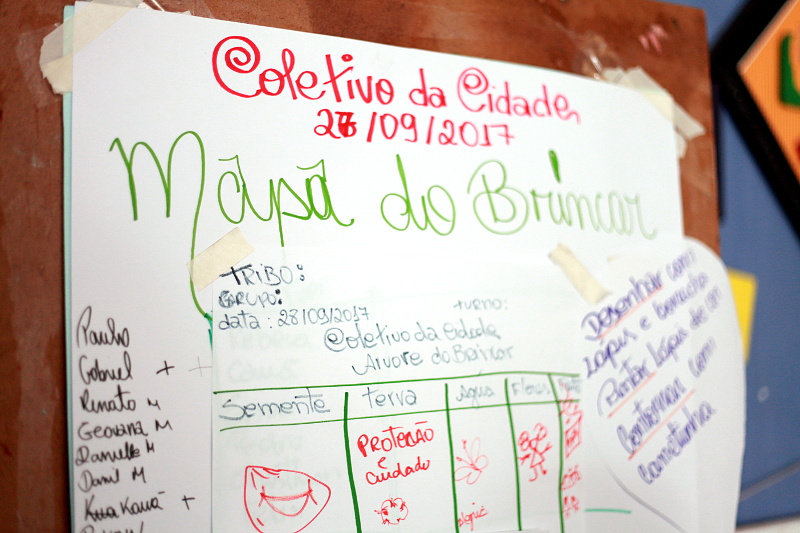 Coletivo da Cidade
28/09/2017
Mãpã do Brincar
TRIBO:
GRUPO:
turno:
data: 28/09/2017
Coletivo da Cidade
Alvore do Brincar
Semente
terra
Agua
Flores
PROTEÇÃO
e
cuidado
Paulo
Gabriel + +
Renato M
Geovana M
Danielle M
Danil M
Kauã +
Desenhar com
Lápis e borracha
Pintar Lápis de cor
Contornar com
Canetinha